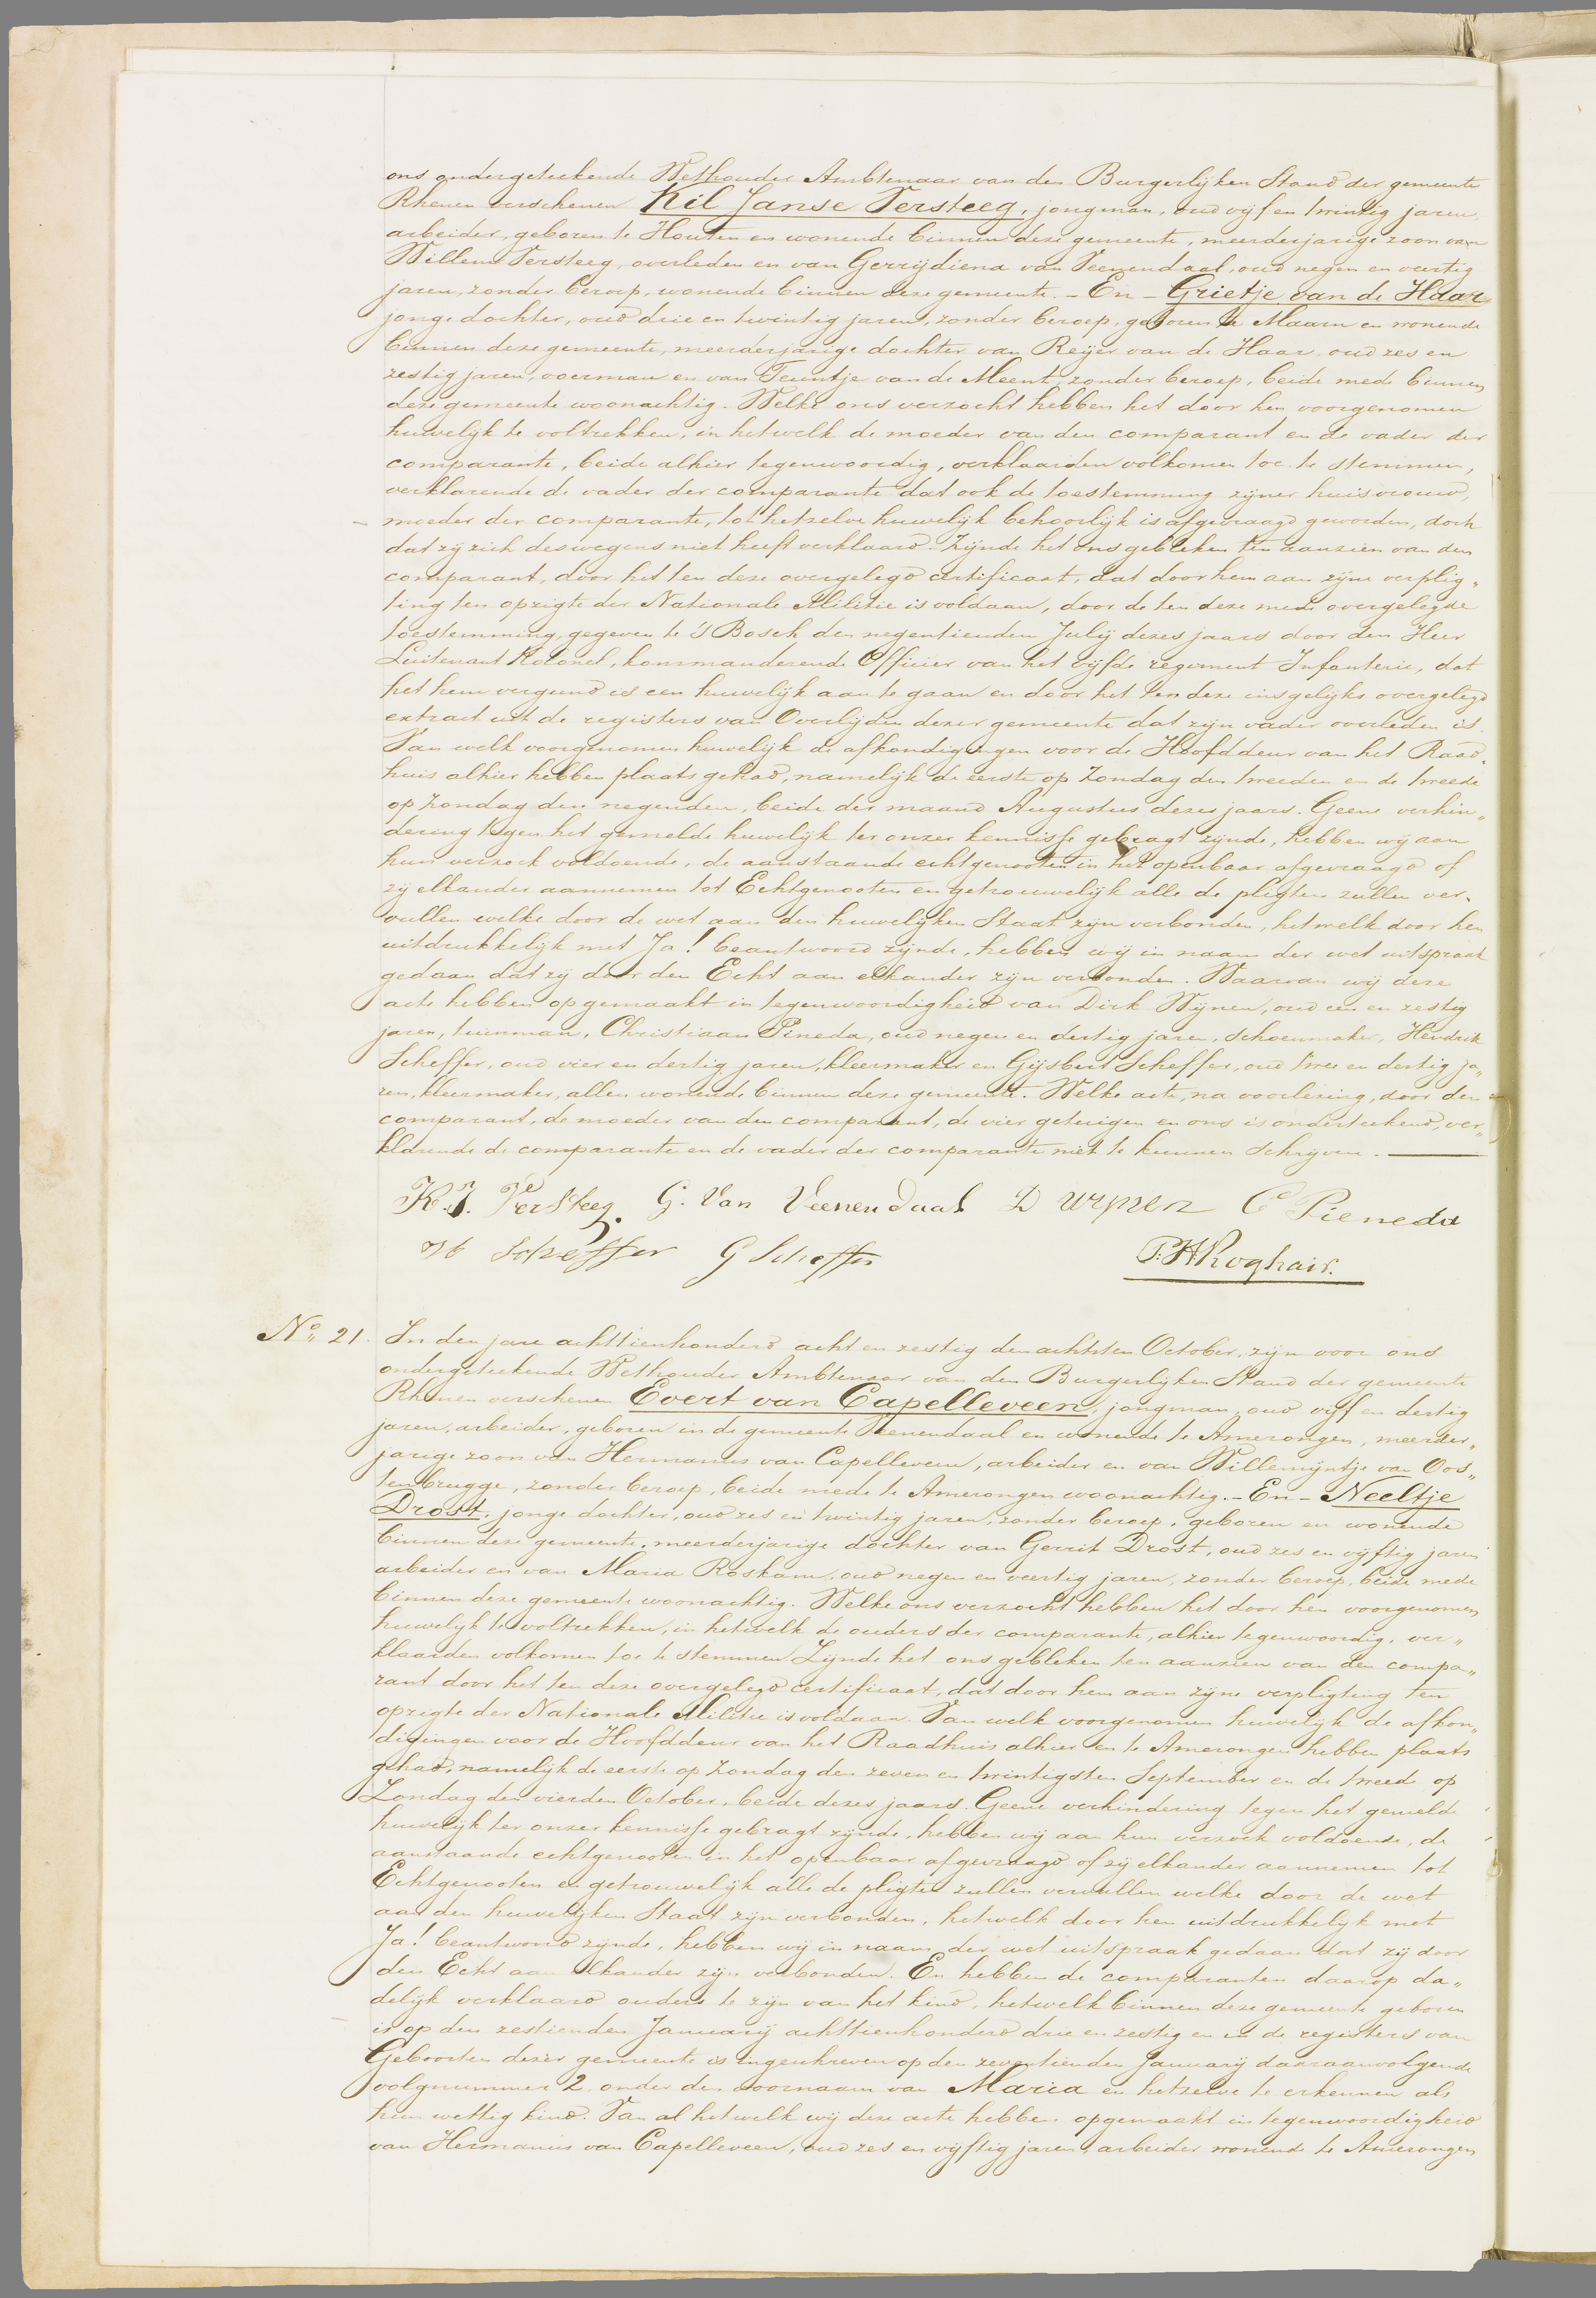 ons ondergeteekende Wethouder Ambtenaar van den Burgerlijken Stand der gemeente
Rhenen verschenen Kil Janse Versteeg, jongman, oud vijf en twintig jaren,
arbeider, geboren te Houten en wonende binnen deze gemeente, meerderjarige zoon van
Willem Versteeg, overleden en van Gerrijdiena van Veenendaal, oud negen en veertig
jaren, zonder beroep, wonende binnen deze gemeente. - En - Grietje van de Haar
jonge dochter, oud drie en twintig jaren, zonder beroep, geboren te Maarn en wonende
binnen deze gemeente, meerderjarige dochter van Reijer van de Haar, oud zes en
zestig jaren, voerman en van Teuntje van de Meent, zonder beroep, beide mede binnen
deze gemeente woonachtig. Welke ons verzocht hebben het door hen voorgenomen
huwelijk te voltrekken, in hetwelk de moeder van den comparant en de vader der
comparante, beide alhier tegenwoordig, verklaarden volkomen toe te stemmen,
verklarende de vader der comparante dat ook de toestemming zijner huisvrouw,
moeder der comparante, tot hetzelve huwelijk behoorlijk is afgevraagd geworden, doch
dat zij zich deswegens niet heeft verklaard. Zijnde het ons gebleken ten aanzien van den
comparant, door het ten deze overgelegd certificaat, dat door hem aan zijne verplig„
ting ten opzigte der Nationale Militie is voldaan, door de ten deze mede overgelegde
toestemming, gegeven te 's Bosch den negentienden Julij dezes jaars door den Heer
Luitenant Kolonel, kommanderende Officier van het vijfde regiment Infanterie, dat
het hem vergund is een huwelijk aan te gaan en door het ten deze insgelijks overgelegd
extract uit de registers van Overlijden dezer gemeente dat zijn vader overleden is.
Van welk voorgenomen huwelijk de afkondigingen voor de Hoofddeur van het Raad„
huis alhier hebben plaats gehad, namelijk de eerste op Zondag den tweeden en de tweede
op Zondag den negenden, beide der maand Augustus dezes jaars. Geene verhin„
dering tegen het gemelde huwelijk ter onzer kennisse gebragt zijnde, hebben wij aan
hun verzoek voldoende, de aanstaande echtgenooten in het openbaar afgevraagd of
zij elkander aannemen tot Echtgenooten en getrouwelijk alle de pligten zullen ver„
vullen welke door de wet aan den huwelijken Staat zijn verbonden, hetwelk door hen
uitdrukkelijk met Ja! beantwoord zijnde, hebben wij in naam der wet uitspraak
gedaan dat zij door den Echt aan elkander zijn verbonden. Waarvan wij deze
acte hebben opgemaakt in tegenwoordigheid van Dirk Wijnen, oud een en zestig
jaren, tuinman, Christiaan Pineda, oud negen en dertig jaren, schoenmaker, Hendrik
Scheffer, oud vier en dertig jaren, kleermaker en Gijsbert Scheffer, oud twee en dertig ja„
ren, kleermaker, allen wonende binnen deze gemeente. Welke acte, na voorlezing, door den
comparant, de moeder van den comparant, de vier getuigen en ons is onderteekend, ver„
klarende de comparante en de vader der comparante niet te kunnen schrijven.
K. J. VerSteeg. G. Van Veenendaal D Wynen C Pieneda
H Scheffer G Scheffer P. H Roghair.
No. 21. In den jare achttienhonderd acht en zestig den achtsten October, zijn voor ons
ondergeteekende Wethouder Ambtenaar van den Burgerlijken Stand der gemeente
Rhenen verschenen Evert van Capelleveen, jongman, oud vijf en dertig
jaren, arbeider, geboren in de gemeente Veenendaal en wonende te Amerongen, meerder„
jarige zoon van Hermanus van Capelleveen, arbeider en van Willemijntje van Oos„
tenbrugge, zonder beroep, beide mede te Amerongen woonachtig. - En - Neeltje
Drost, jonge dochter, oud zes en twintig jaren, zonder beroep, geboren en wonende
binnen deze gemeente, meerderjarige dochter van Gerrit Drost, oud zes en vijftig jaren
arbeider en van Maria Roskam, oud negen en veertig jaren, zonder beroep, beide mede
binnen deze gemeente woonachtig. Welke ons verzocht hebben het door hen voorgenomen
huwelijk te voltrekken, in hetwelk de ouders der comparante, alhier tegenwoordig, ver„
klaarden volkomen toe te stemmen. Zijnde het ons gebleken ten aanzien van den compa„
rant door het ten deze overgelegd certificaat, dat door hem aan zijne verpligting ten
opzigte der Nationale Militie is voldaan. Van welk voorgenomen huwelijk de afkon„
digingen voor de Hoofddeur van het Raadhuis alhier en te Amerongen hebben plaats
gehad, namelijk de eerste op Zondag den zeven en twintigsten September en de tweede op
Zondag den vierden October, beide dezes jaars. Geene verhindering tegen het gemelde
huwelijk ter onzer kennisse gebragt zijnde, hebben wij aan hun verzoek voldoende, de
aanstaande echtgenooten in het openbaar afgevraagd of zij elkander aannemen tot
Echtgenooten en getrouwelijk alle de pligten zullen vervullen welke door de wet
aan den huwelijken Staat zijn verbonden, hetwelk door hen uitdrukkelijk met
Ja! beantwoord zijnde, hebben wij in naam der wet uitspraak gedaan dat zij door
den Echt aan elkander zijn verbonden. En hebben de comparanten daarop da„
delijk verklaard ouders te zijn van het kind, hetwelk binnen deze gemeente geboren
is op den zestienden Januarij achttienhonderd drie en zestig en in de registers van
Geboorten dezer gemeente is ingeschreven op den zeventienden Januarij daaraanvolgende
volgnummer 2, onder den voornaam van Maria en hetzelve te erkennen als
hun wettig kind. Van al hetwelk wij deze acte hebben opgemaakt in tegenwoordigheid
van Hermanus van Capelleveen, oud zes en vijftig jaren, arbeider wonende te Amerongen